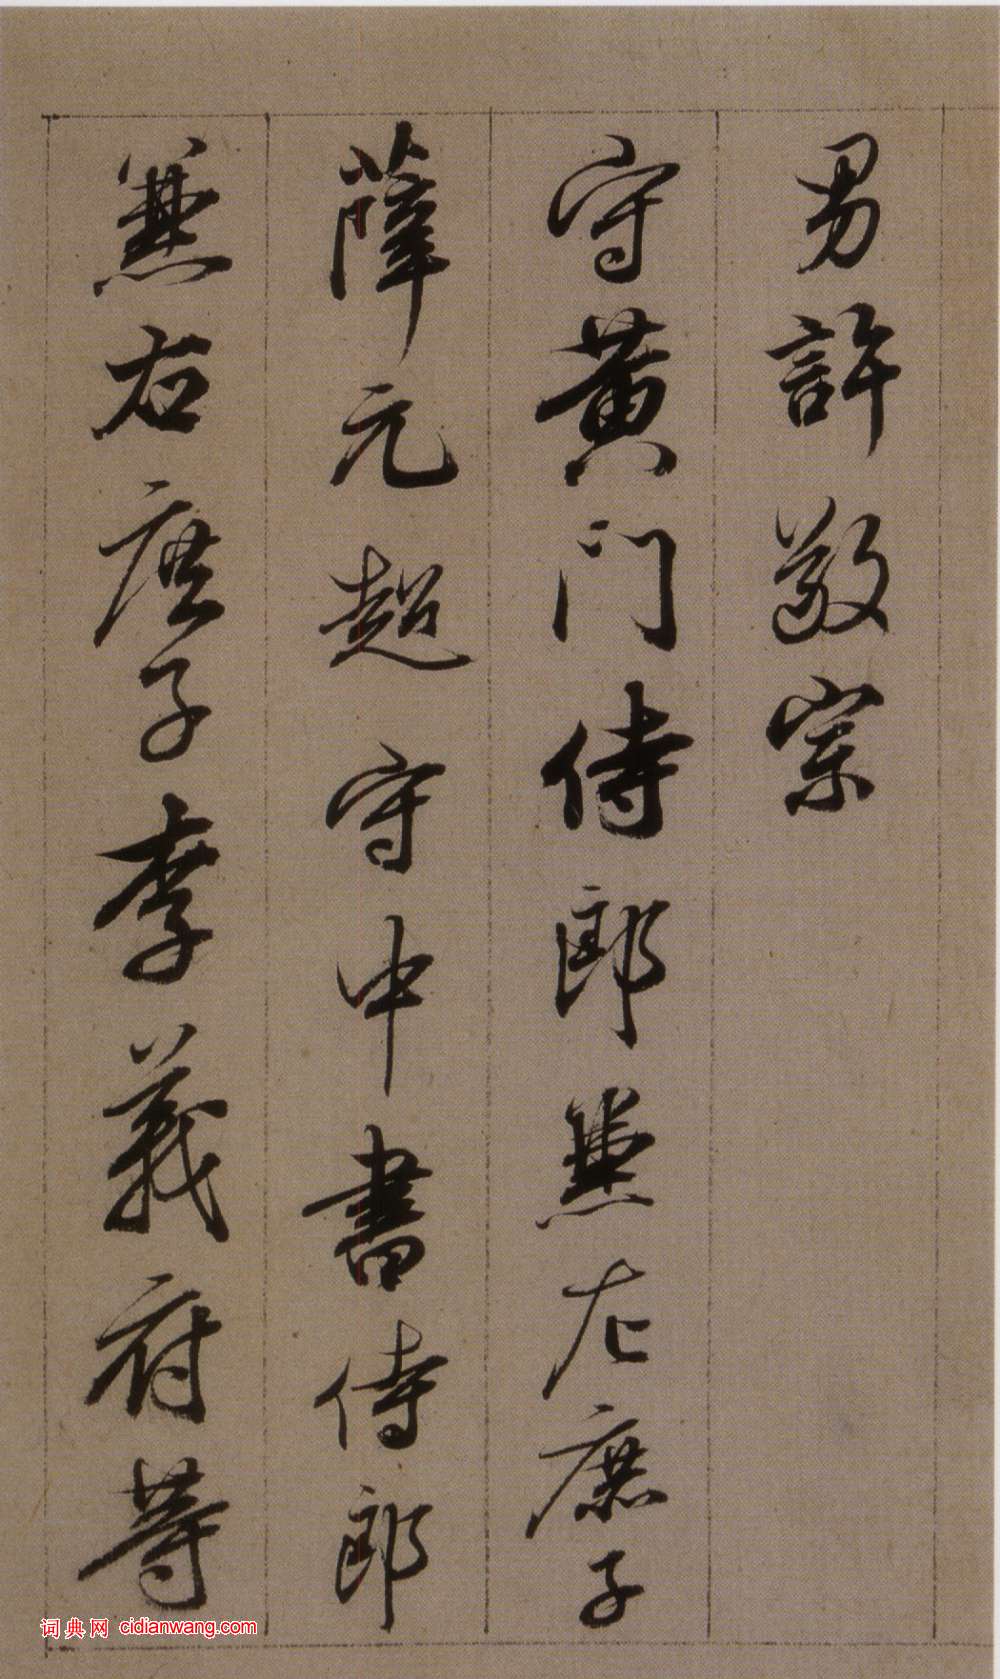 男許敬宗
守黃门侍郎兼左庶子
薛元超守中書侍郎
兼右庶子李義府等
词典网 cidianwang.com